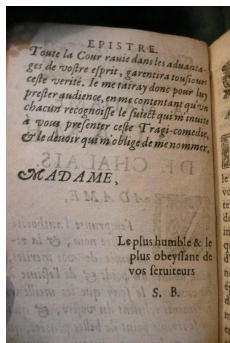 EPISTRE.
Toute la Cour rauie dans les aduanta-
ges de vostre esprit, garentira tousiours
ceste verité. Ie me tairay donc pour luy
prester audience, en me contentant qu'vn
chacun recognoisse le suiect qui m'inuite
à vous presenter ceste Tragi-comedie,
& le deuoir qui m'oblige de me nommer,
MADAME,
Le plus humble & le
plus obeyssant de
vos seruiteurs
S. B.